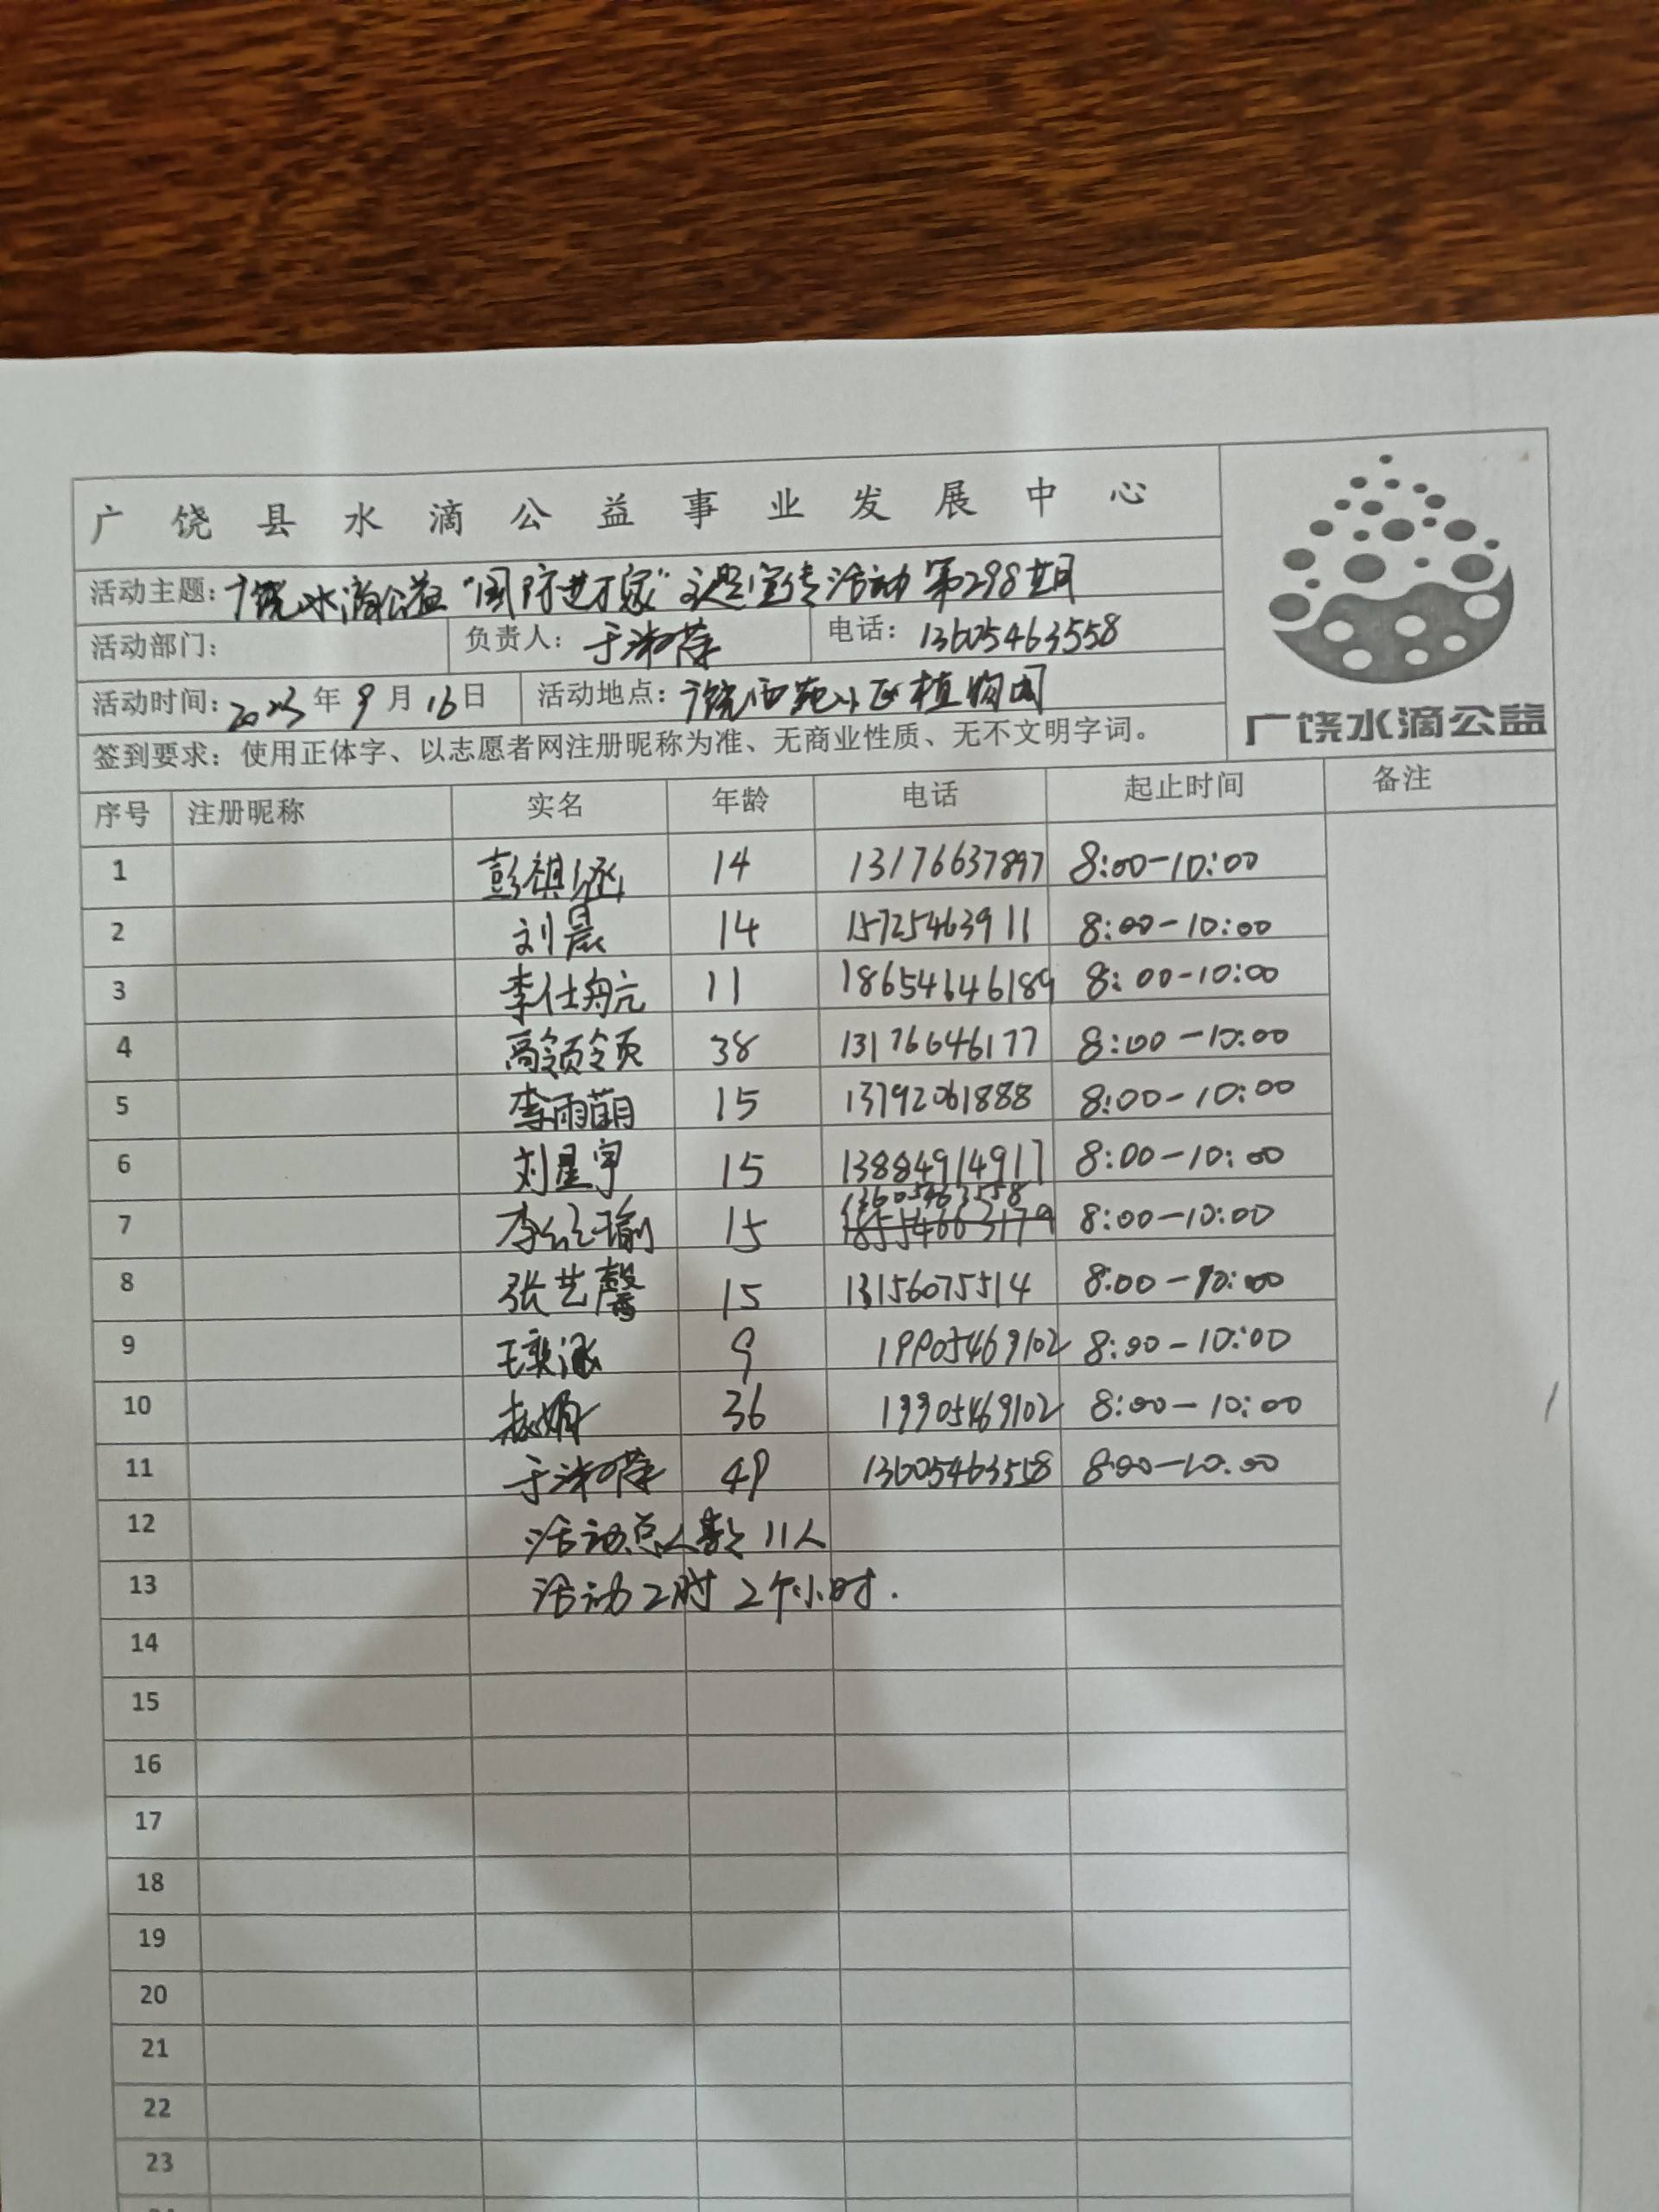 广饶县水滴公益事业发展中心
活动主题：广饶水滴公益“国防进万家”主题宣传活动第298期
活动部门： 负责人：于淑萍 电话：13605463558
活动时间：2023年9月16日 活动地点：广饶西苑小区植物园
签到要求：使用正体字、以志愿者网注册昵称为准、无商业性质、无不文明字词。
广饶水滴公益
序号 注册昵称 实名 年龄 电话 起止时间 备注
1 彭祺涵 14 13176637897 8:00-10:00
2 刘晨 14 15725463911 8:00-10:00
3 李仕航 11 18654646189 8:00-10:00
4 高领领 38 13176646177 8:00-10:00
5 李雨萌 15 13792061888 8:00-10:00
6 刘星宇 15 13884914917 8:00-10:00
7 李红瑜 15 13605463558 18554663179 8:00-10:00
8 张艺馨 15 13156075514 8:00-10:00
9 王奕涵 9 19905469102 8:00-10:00
10 赵娟 36 19905469102 8:00-10:00
11 于淑萍 49 13605463558 8:00-10:00
12 活动总人数11人
13 活动2时 2个小时.
14
15
16
17
18
19
20
21
22
23